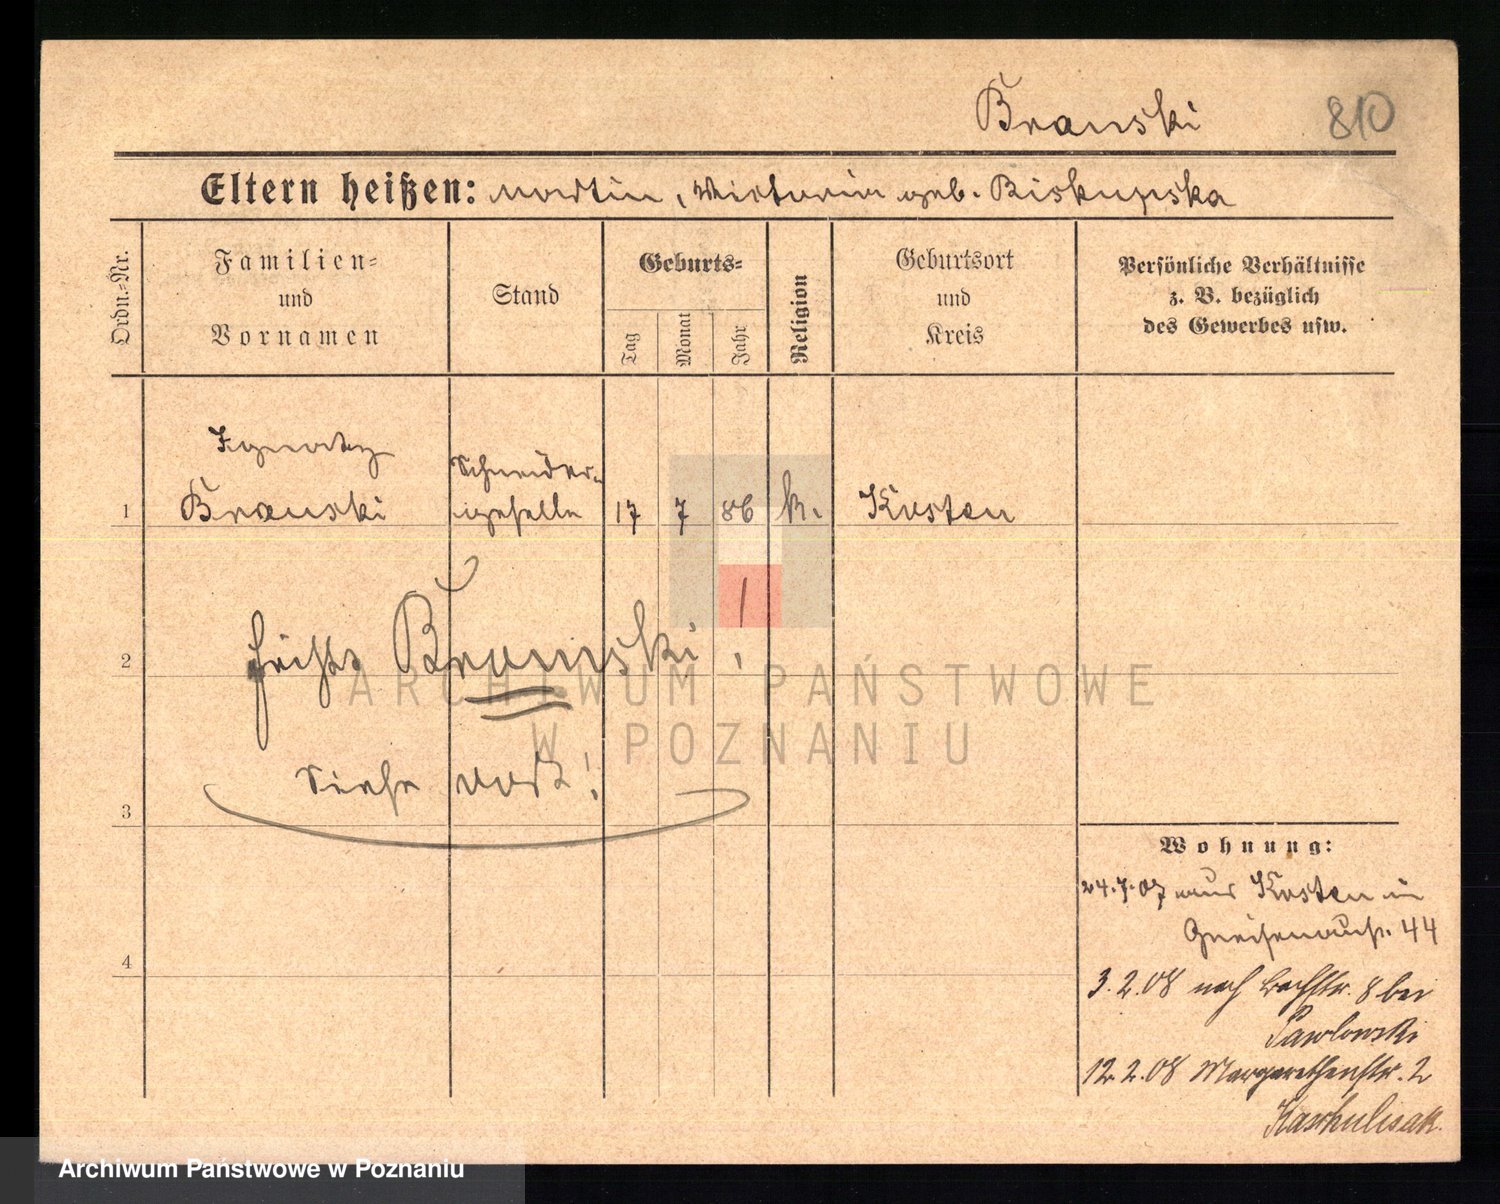 Branski 810
Eltern heißen: Martin, Victoria geb. Biskupska
Ordn.-Nr.
Familien-
und
Vornamen
Stand
Geburts-
Tag
Monat
Jahr
Religion
Geburtsort
und
Kreis
Persönliche Verhältnisse
z. B. bezüglich
des Gewerbes usw.
Ignatz
Schneider-
1 Branski geselle 17 7 86 k. Kosten
2 heißt Bramski!
Siehe dort!
3
4
ARCHIWUM PAŃSTWOWE
W POZNANIU
Wohnung:
24.7.07 aus Kosten in
Gneisenaustr. 44
3.2.08 nach Bachstr. 8 bei
Pawlowski
12.2.08 Margarethenstr. 2
Archiwum Państwowe w Poznaniu